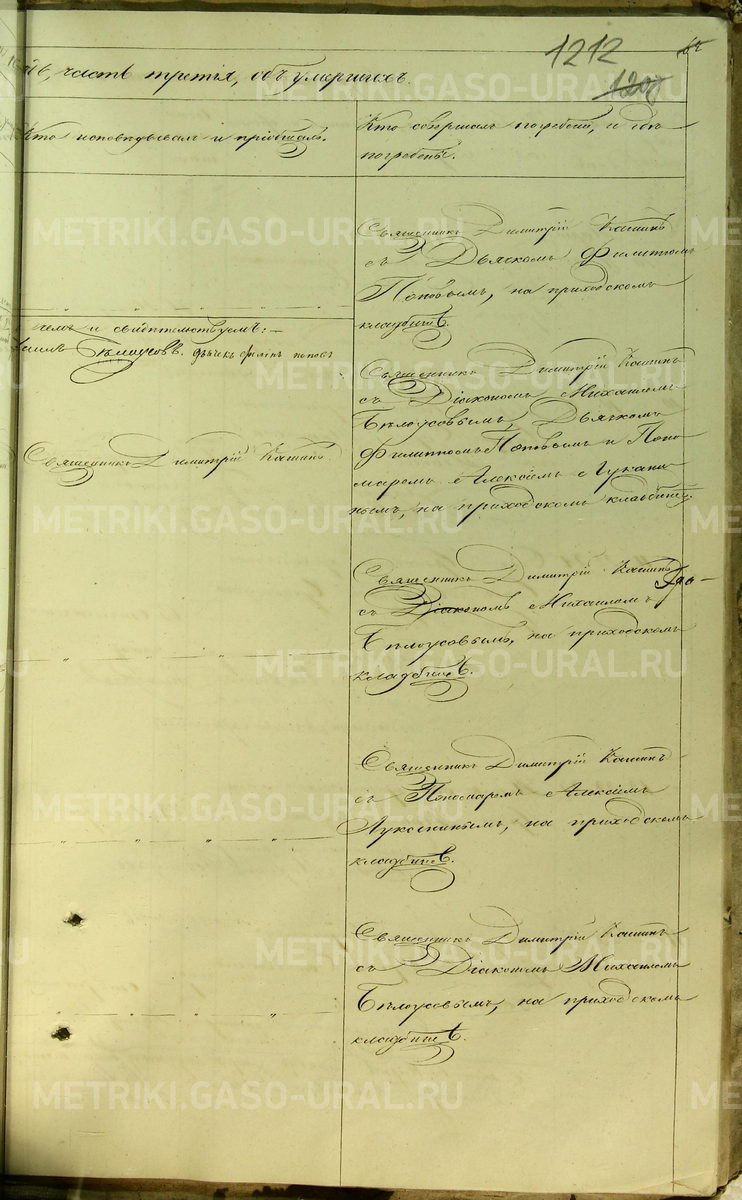 1212
1208
часть третія, объ умершихъ.
Кто исповѣдывалъ и пріобщалъ.
Кто совершалъ погребеніе, и гдѣ
погребены.
Священникъ Димитрій Кашинъ
съ Дьячкомъ Филиппомъ
Поповымъ, на приходскомъ
кладбищѣ.
и свидѣтельствуемъ:
Бѣлоусовъ. дьячекъ филипъ поповъ
Священникъ Димитрій Кашинъ
съ Діакономъ Михаиломъ
Бѣлоусовымъ, Дьячкомъ
Филиппомъ Поповымъ и Поно
маремъ Алексѣемъ Лукани
нымъ, на приходскомъ кладбищѣ.
Священникъ Димитрій Кашинъ.
Священникъ Димитрій Кашинъ
съ Діакономъ Михаиломъ
Бѣлоусовымъ, на приходскомъ
кладбищѣ.
Священникъ Димитрій Кашинъ
съ Пономаремъ Алексѣемъ
Луканинымъ, на приходскомъ
кладбищѣ.
Священникъ Димитрій Кашинъ
съ Діакономъ Михаиломъ
Бѣлоусовымъ, на приходскомъ
кладбищѣ.
METRIKI.GASO-URAL.RU